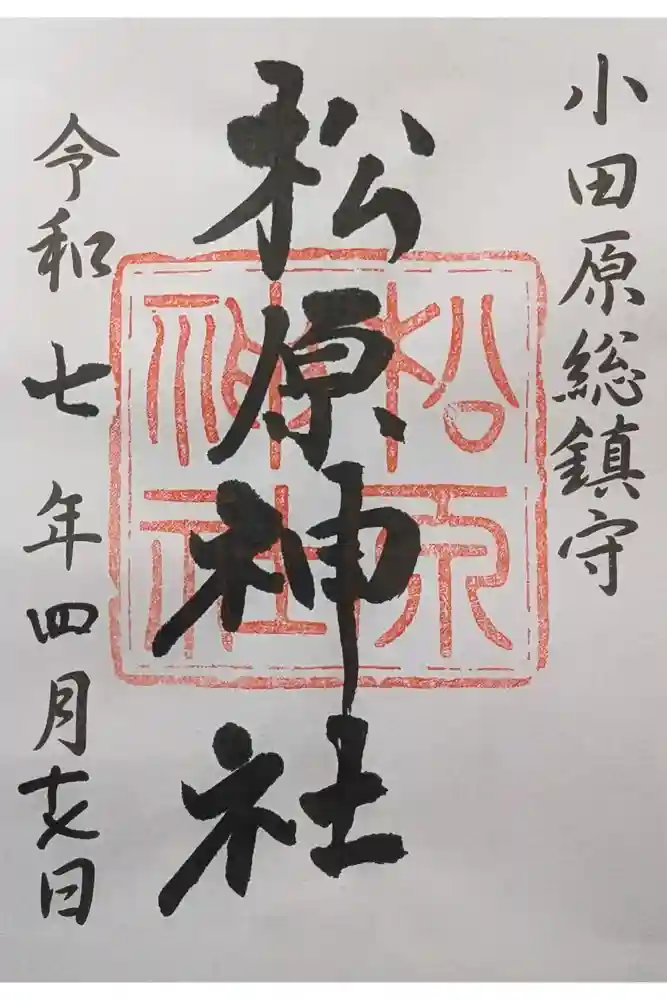 小田原総鎮守
松原神社
松原神社
令和七年四月十日